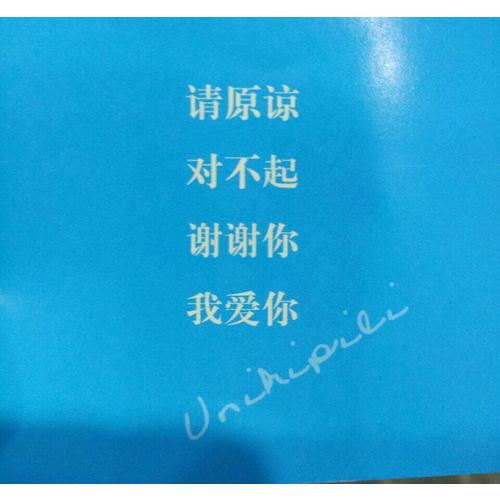 请原谅
对不起
谢谢你
我爱你
Unihipili